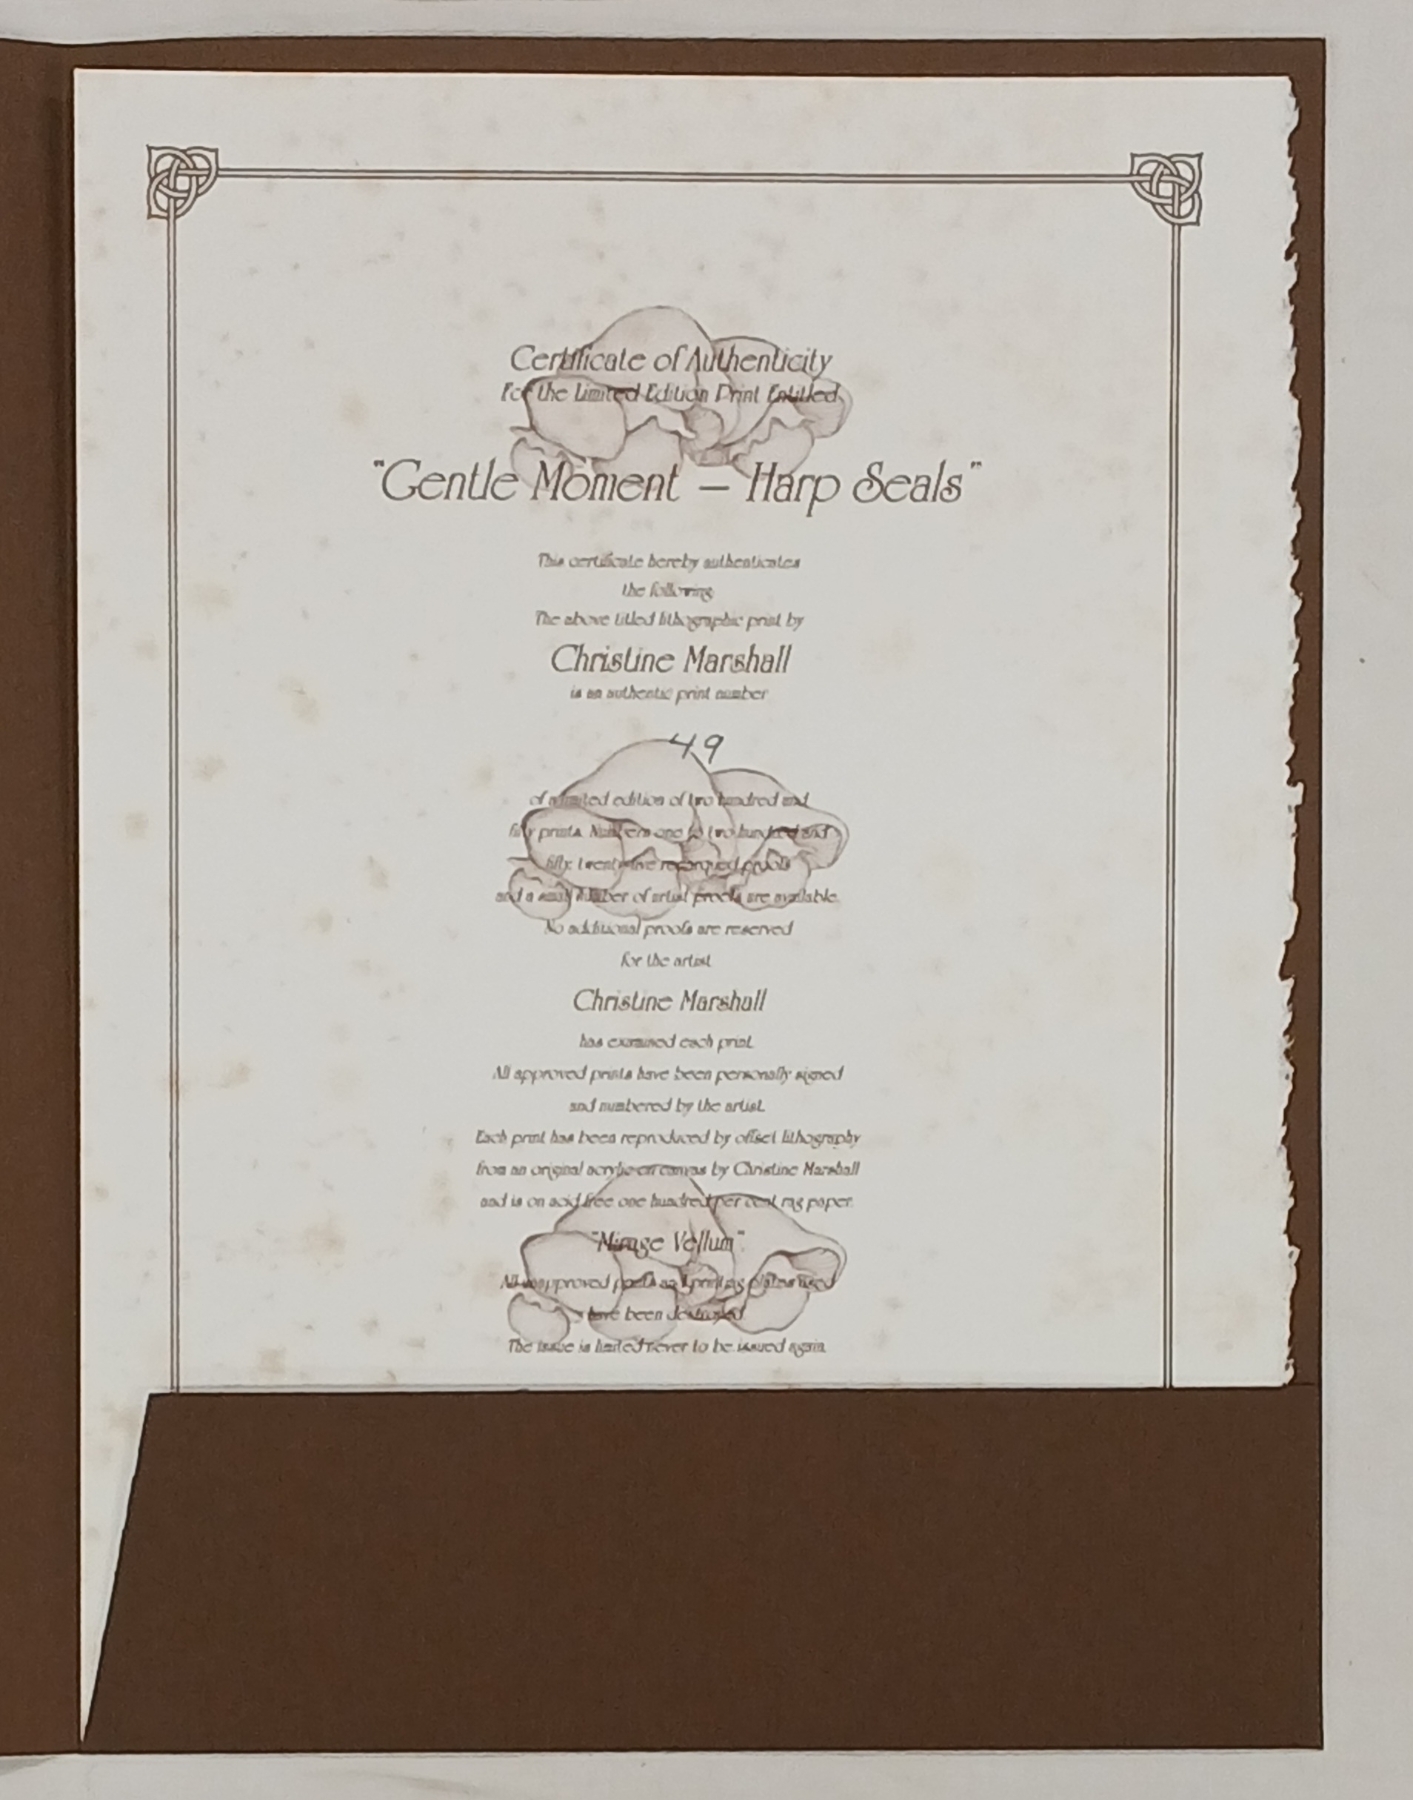 Certificate of Authenticity
For the Limited Edition Print Entitled
"Gentle Moment – Harp Seals"
This certificate hereby authenticates
the following
The above titled lithographic print by
Christine Marshall
is an authentic print number
49
of a limited edition of two hundred and
fifty prints. Numbers one to two hundred and
fifty, twenty-five remarqued proofs
and a small number of artist proofs are available.
No additional proofs are reserved
for the artist
Christine Marshall
has examined each print.
All approved prints have been personally signed
and numbered by the artist.
Each print has been reproduced by offset lithography
from an original acrylic on canvas by Christine Marshall
and is on acid free one hundred per cent rag paper.
"Mirage Vellum".
All unapproved proofs and printing plates used
have been destroyed.
The issue is limited never to be issued again.